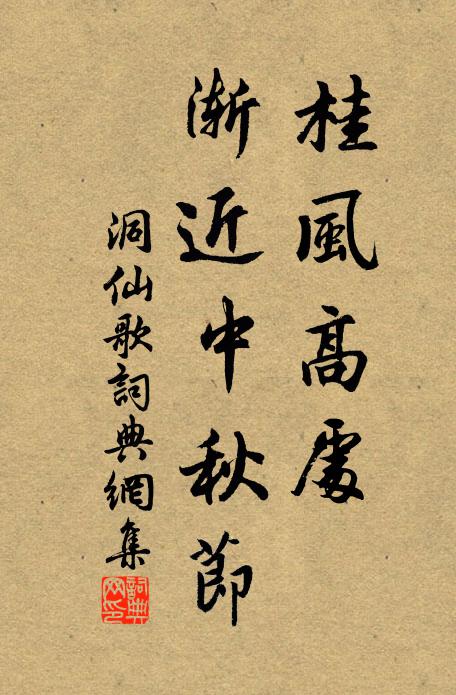 桂風高處
漸近中秋節
洞仙歌詞典網集
詞典网印